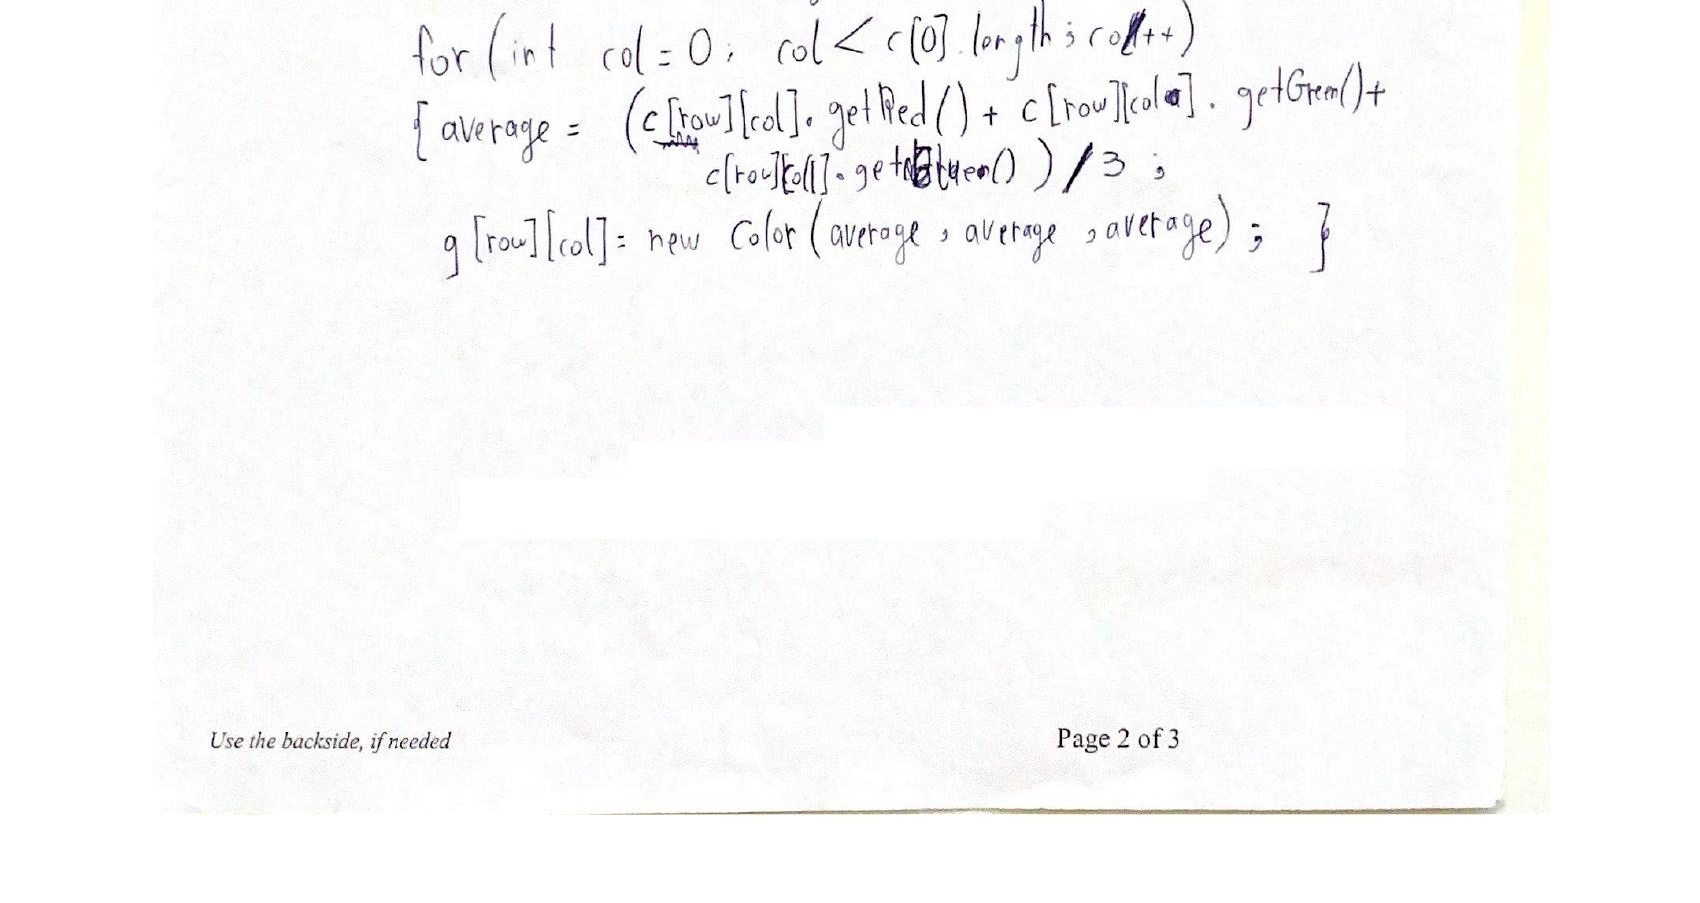 for (int col = 0; col < c[0].length; col++)
{ average = (c[row][col].getRed() + c[row][col].getGreen() +
c[row][col].getBlueen()) / 3 ;
g[row][col] = new Color (average , average , average) ; }
Use the backside, if needed
Page 2 of 3